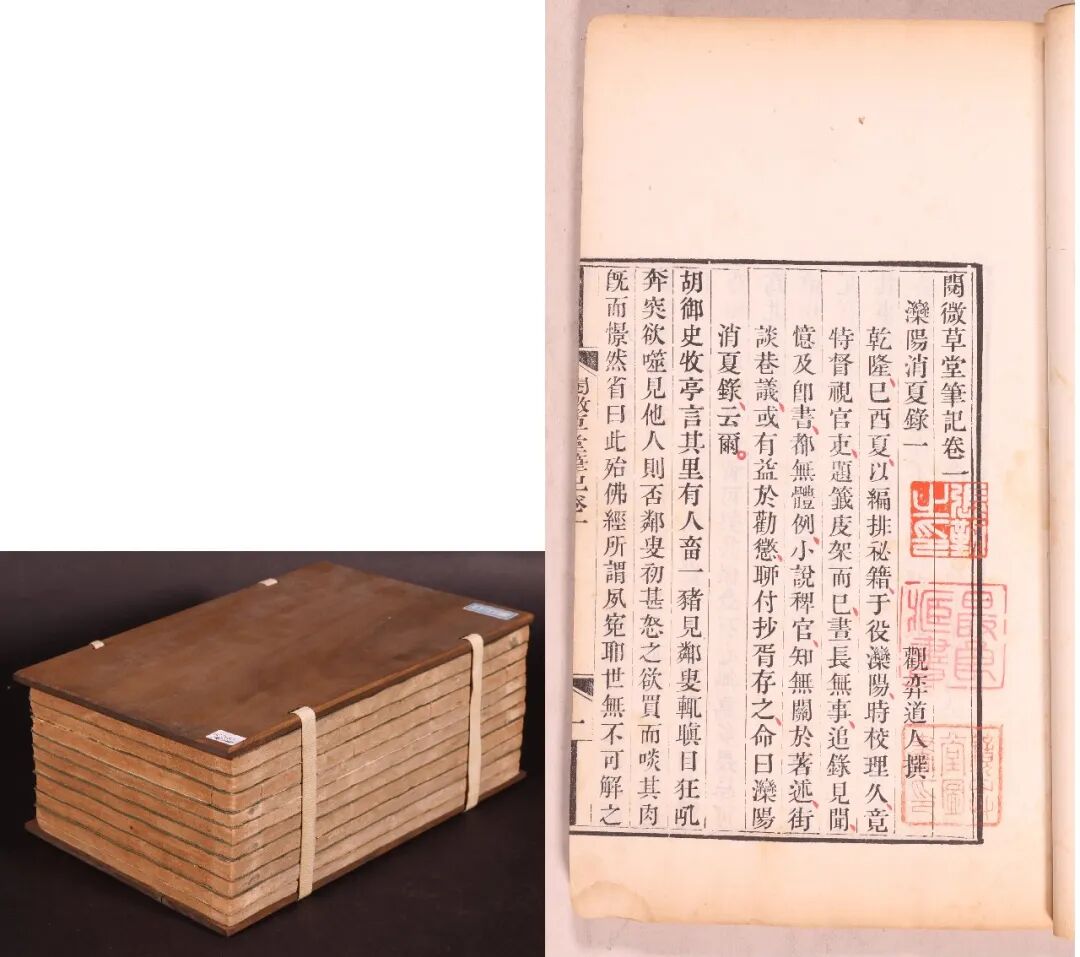 閱微草堂筆記卷一
灤陽消夏錄一
觀弈道人撰
乾隆己酉夏以編排祕籍于役灤陽時校理久竟
特督視官吏題籤庋架而已晝長無事追錄見聞
憶及卽書都無體例小說稗官知無關於著述街
談巷議或有益於勸懲聊付抄胥存之命曰灤陽
消夏錄云爾
胡御史牧亭言其里有人畜一豬見鄰叟輒瞋目狂吼
奔突欲噬見他人則否鄰叟初甚怒之欲買而啖其肉
旣而憬然省曰此殆佛經所謂夙寃耶世無不可解之
閱微草堂筆記卷一
一